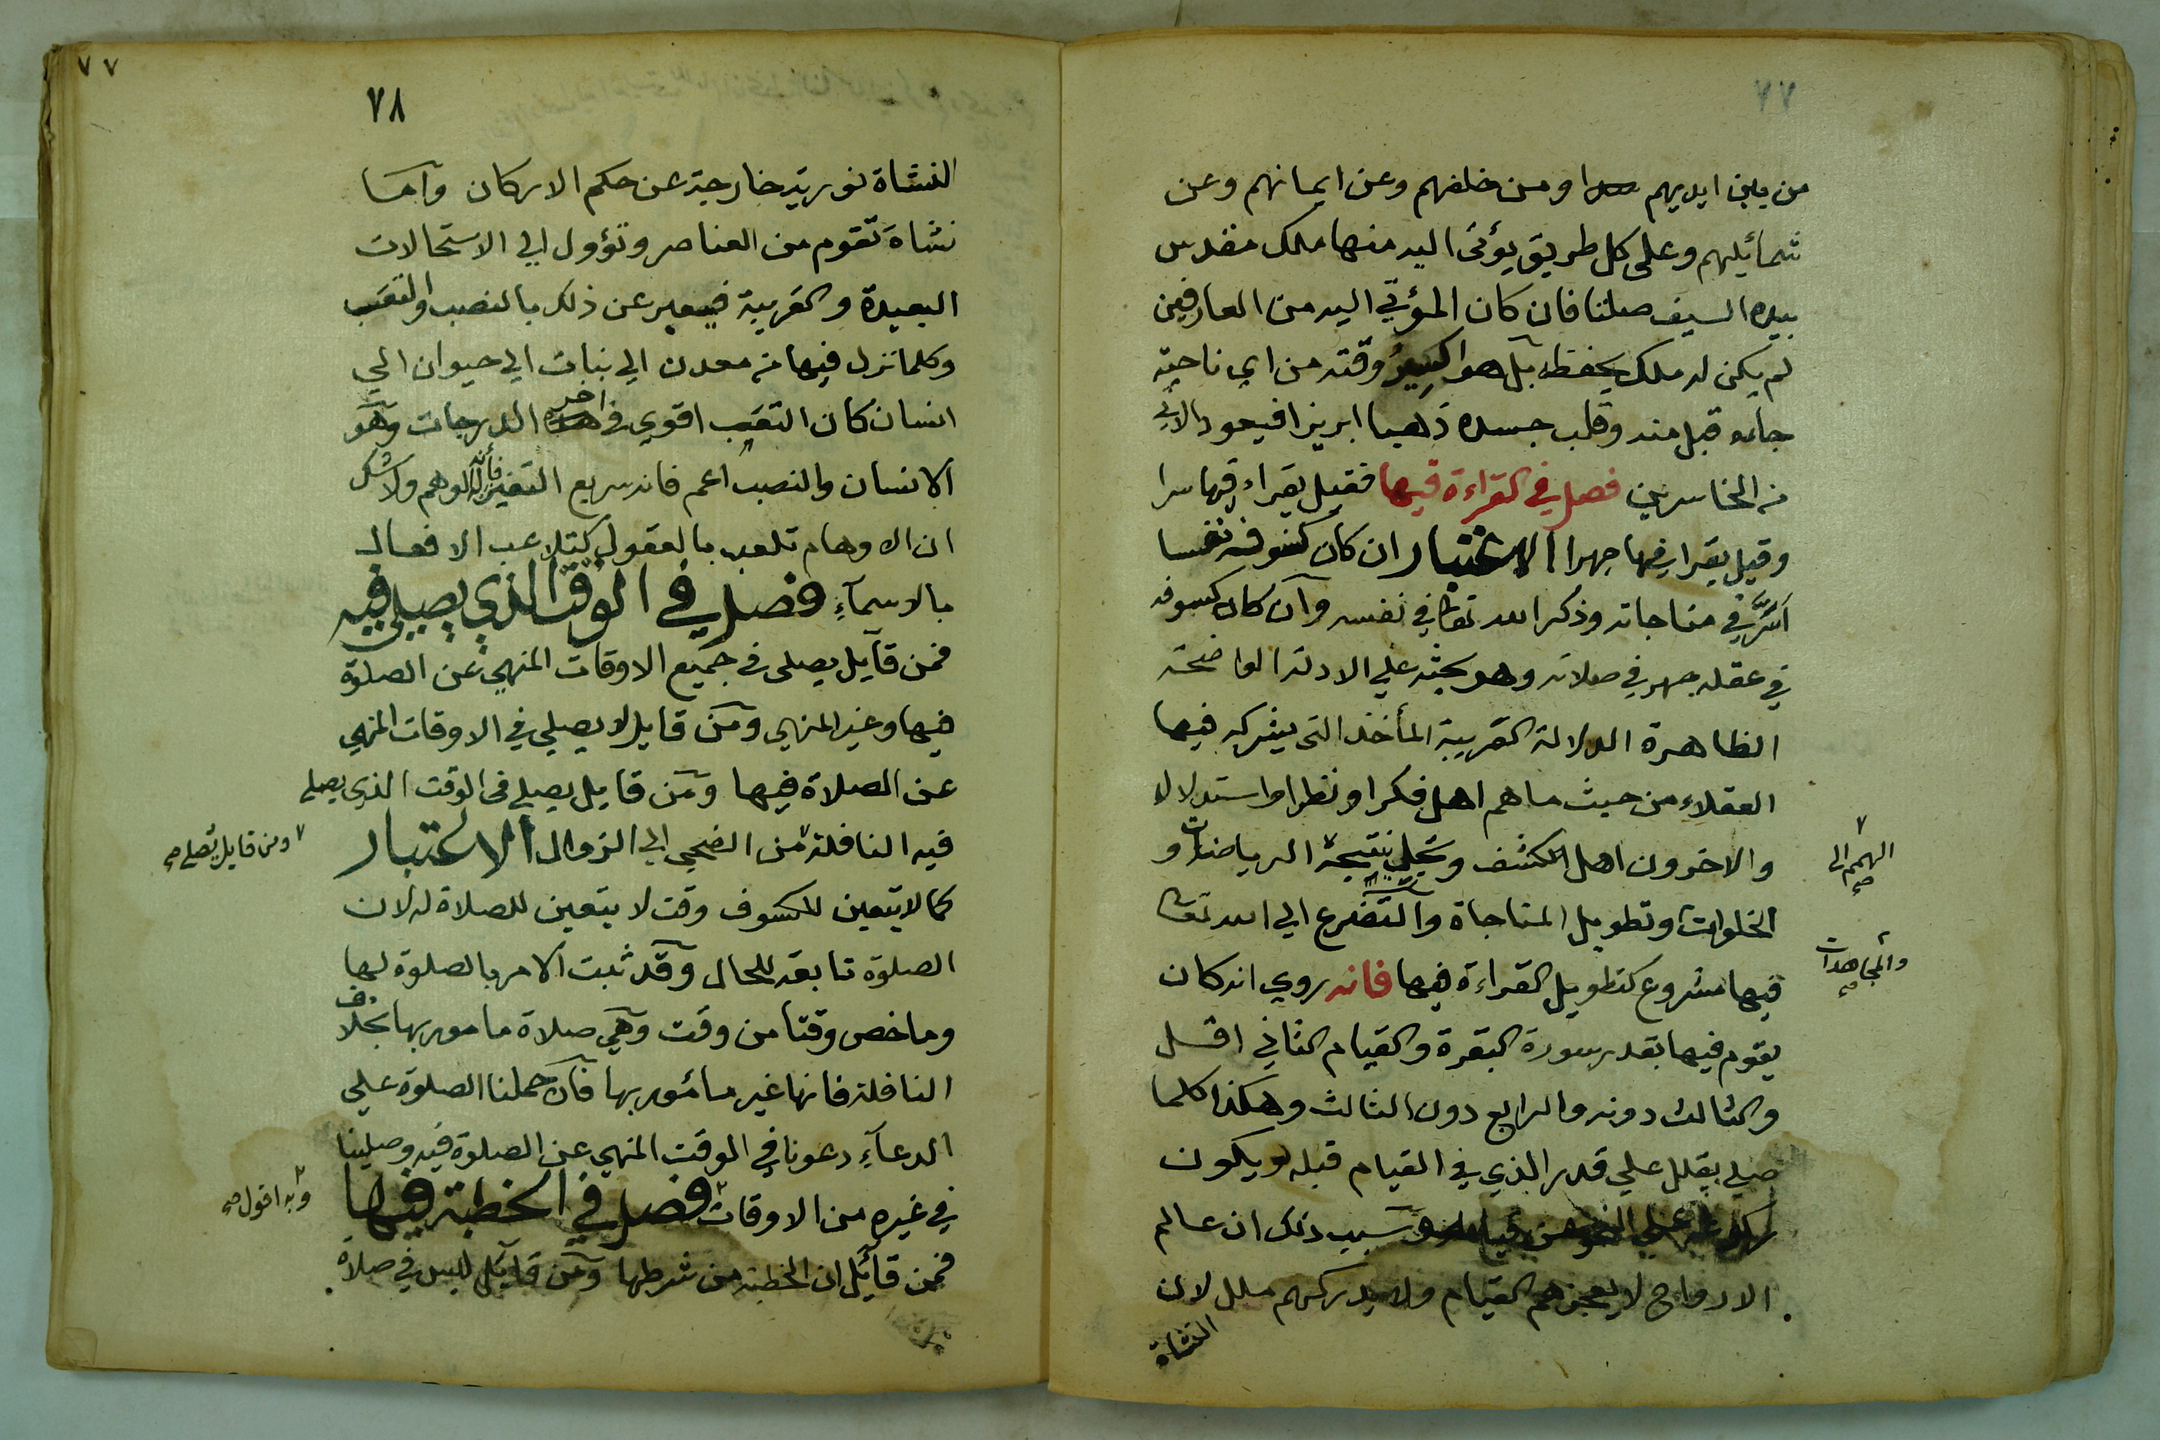 ٧٧
من بين ايديهم ومن خلفهم وعن ايمانهم وعن
شمائيلهم وعلى كل طريق يؤتى اليه منها ملك مقدس
بيده السيف صلتا فان كان المؤتي اليه من العارفين
لم يكن له ملك يحفظه بل هو اكسير وقته من اي ناحية
جاءه قبل منه وقلب جسده ذهبا ابريزا فيعود الاتي
من الخاسرين فصل في القراءة فيها فقيل يقراء فيها سرا
وقيل يقرا فيها جهرا الاعتبار ان كان كسوفه نفسا
اسر في مناجاته وذكر الله تعا في نفسه وان كان كسوفه
في عقله جهر في صلاته وهو بحثه علي الادلة الواضحة
الظاهرة الدلالة القريبة المأخذ التي يشركه فيها
العقلاء من حيث ما هم اهل فكر او نظر او استدلال
والاخرون اهل الكشف وتجلي نتيجة الرياضات و
الهمم الى
الخلوات وتطويل المناجاة والتضرع الي الله تعا
والمجاهدات
فيها مشروع كتطويل القراءة فيها فانه روي انه كان
يقوم فيها بقدر سورة البقرة والقيام الثاني اقل
والثالث دونه والرابع دون الثالث وهكذا كلما
صلي يقلل علي قدر الذي في القيام قبله ويكون
سبب ذلك ان عالم
الارواح لا يعجزهم القيام ولا يدركهم ملل لان
النشاة
٧٧
٧٨
النشاة نورية خارجة عن حكم الاركان واما
نشاة تقوم من العناصر وتؤول الي الاستحالات
البعيدة والقريبة فيعبر عن ذلك بالنصب والتعب
وكلما نزل فيها من معدن الي نبات الي حيوان الي
انسان كان التعب اقوي في اخر الدرجات وهو
الانسان والنصب اعم فانه سريع التغير فانه له الوهم ولا شك
ان الاوهام تلعب بالعقول كتلاعب الافعال
بالاسمآء فصل في الوقت الذي يصلي فيه
فمن قآيل يصلى في جميع الاوقات المنهي عن الصلوة
فيها وغير المنهي ومن قايل لا يصلي في الاوقات المنهي
عن الصلاة فيها ومن قايل يصلي في الوقت الذي يصلي
فيه النافلة من الضحي الي الزوال الاعتبار
ومن قايل تصلى صح
كما لا يتعين للكسوف وقت لا يتعين للصلاة له لان
الصلوة تابعة للحال وقد ثبت الامر بالصلوة لها
وما خص وقتا من وقت وهي صلاة مامور بها بخلاف
النافلة فانها غير مامور بها فان حملنا الصلوة علي
الدعآء دعونا في الوقت المنهي عن الصلوة فيه وصلينا
في غيره من الاوقات فصل في الخطبة فيها
وبه اقول صح
فمن قآئل ان الخطبة من شرطها ومن قآيل ليس في صلاة